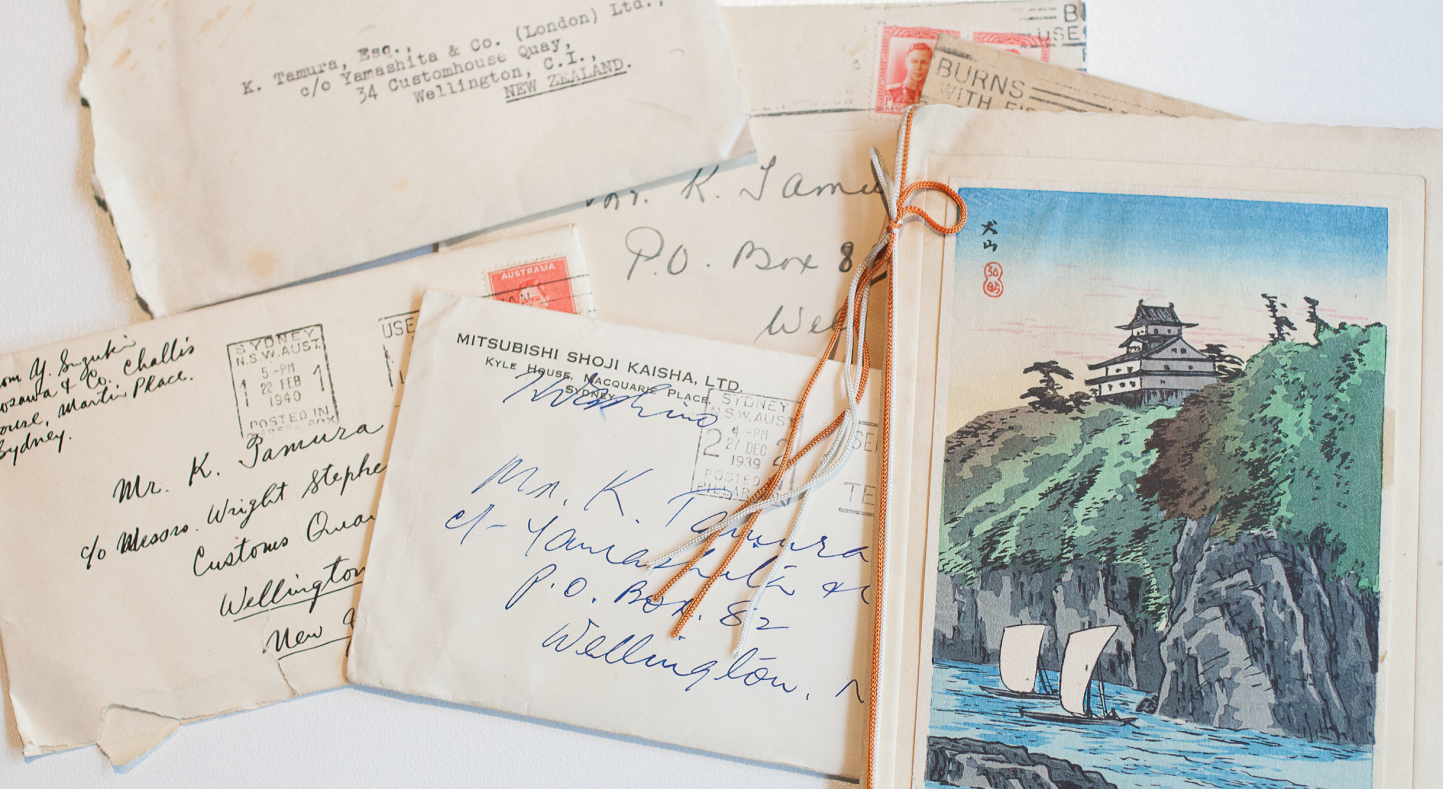 Esq.,
K. Tamura,
c/o Yamashita & Co. (London) Ltd.,
34 Customhouse Quay,
Wellington, C.I.,
NEW ZEALAND.
BURNS
WITH
Mr. K. Tamu
P.O. Box 8
Wel
AUSTRALIA
Y. Suzuki
& Co. Challis
House, Martin Place.
Sydney.
SYDNEY
N.S.W. AUST.
5 - PM
1 22 FEB 1
1940
POSTED IN
USE
Mr. K. Tamura
c/o Messrs. Wright Stephe
Customs Quay
Wellington
New
MITSUBISHI SHOJI KAISHA, LTD.
KYLE HOUSE, MACQUARIE PLACE,
SYDNEY
SYDNEY
N.S.W. AUST
4 - PM
2 27 DEC 2
1939
POSTED IN
Mr. K. Tamura
c/- Yamashita &
P.O. Box. 82
Wellington. N
犬山